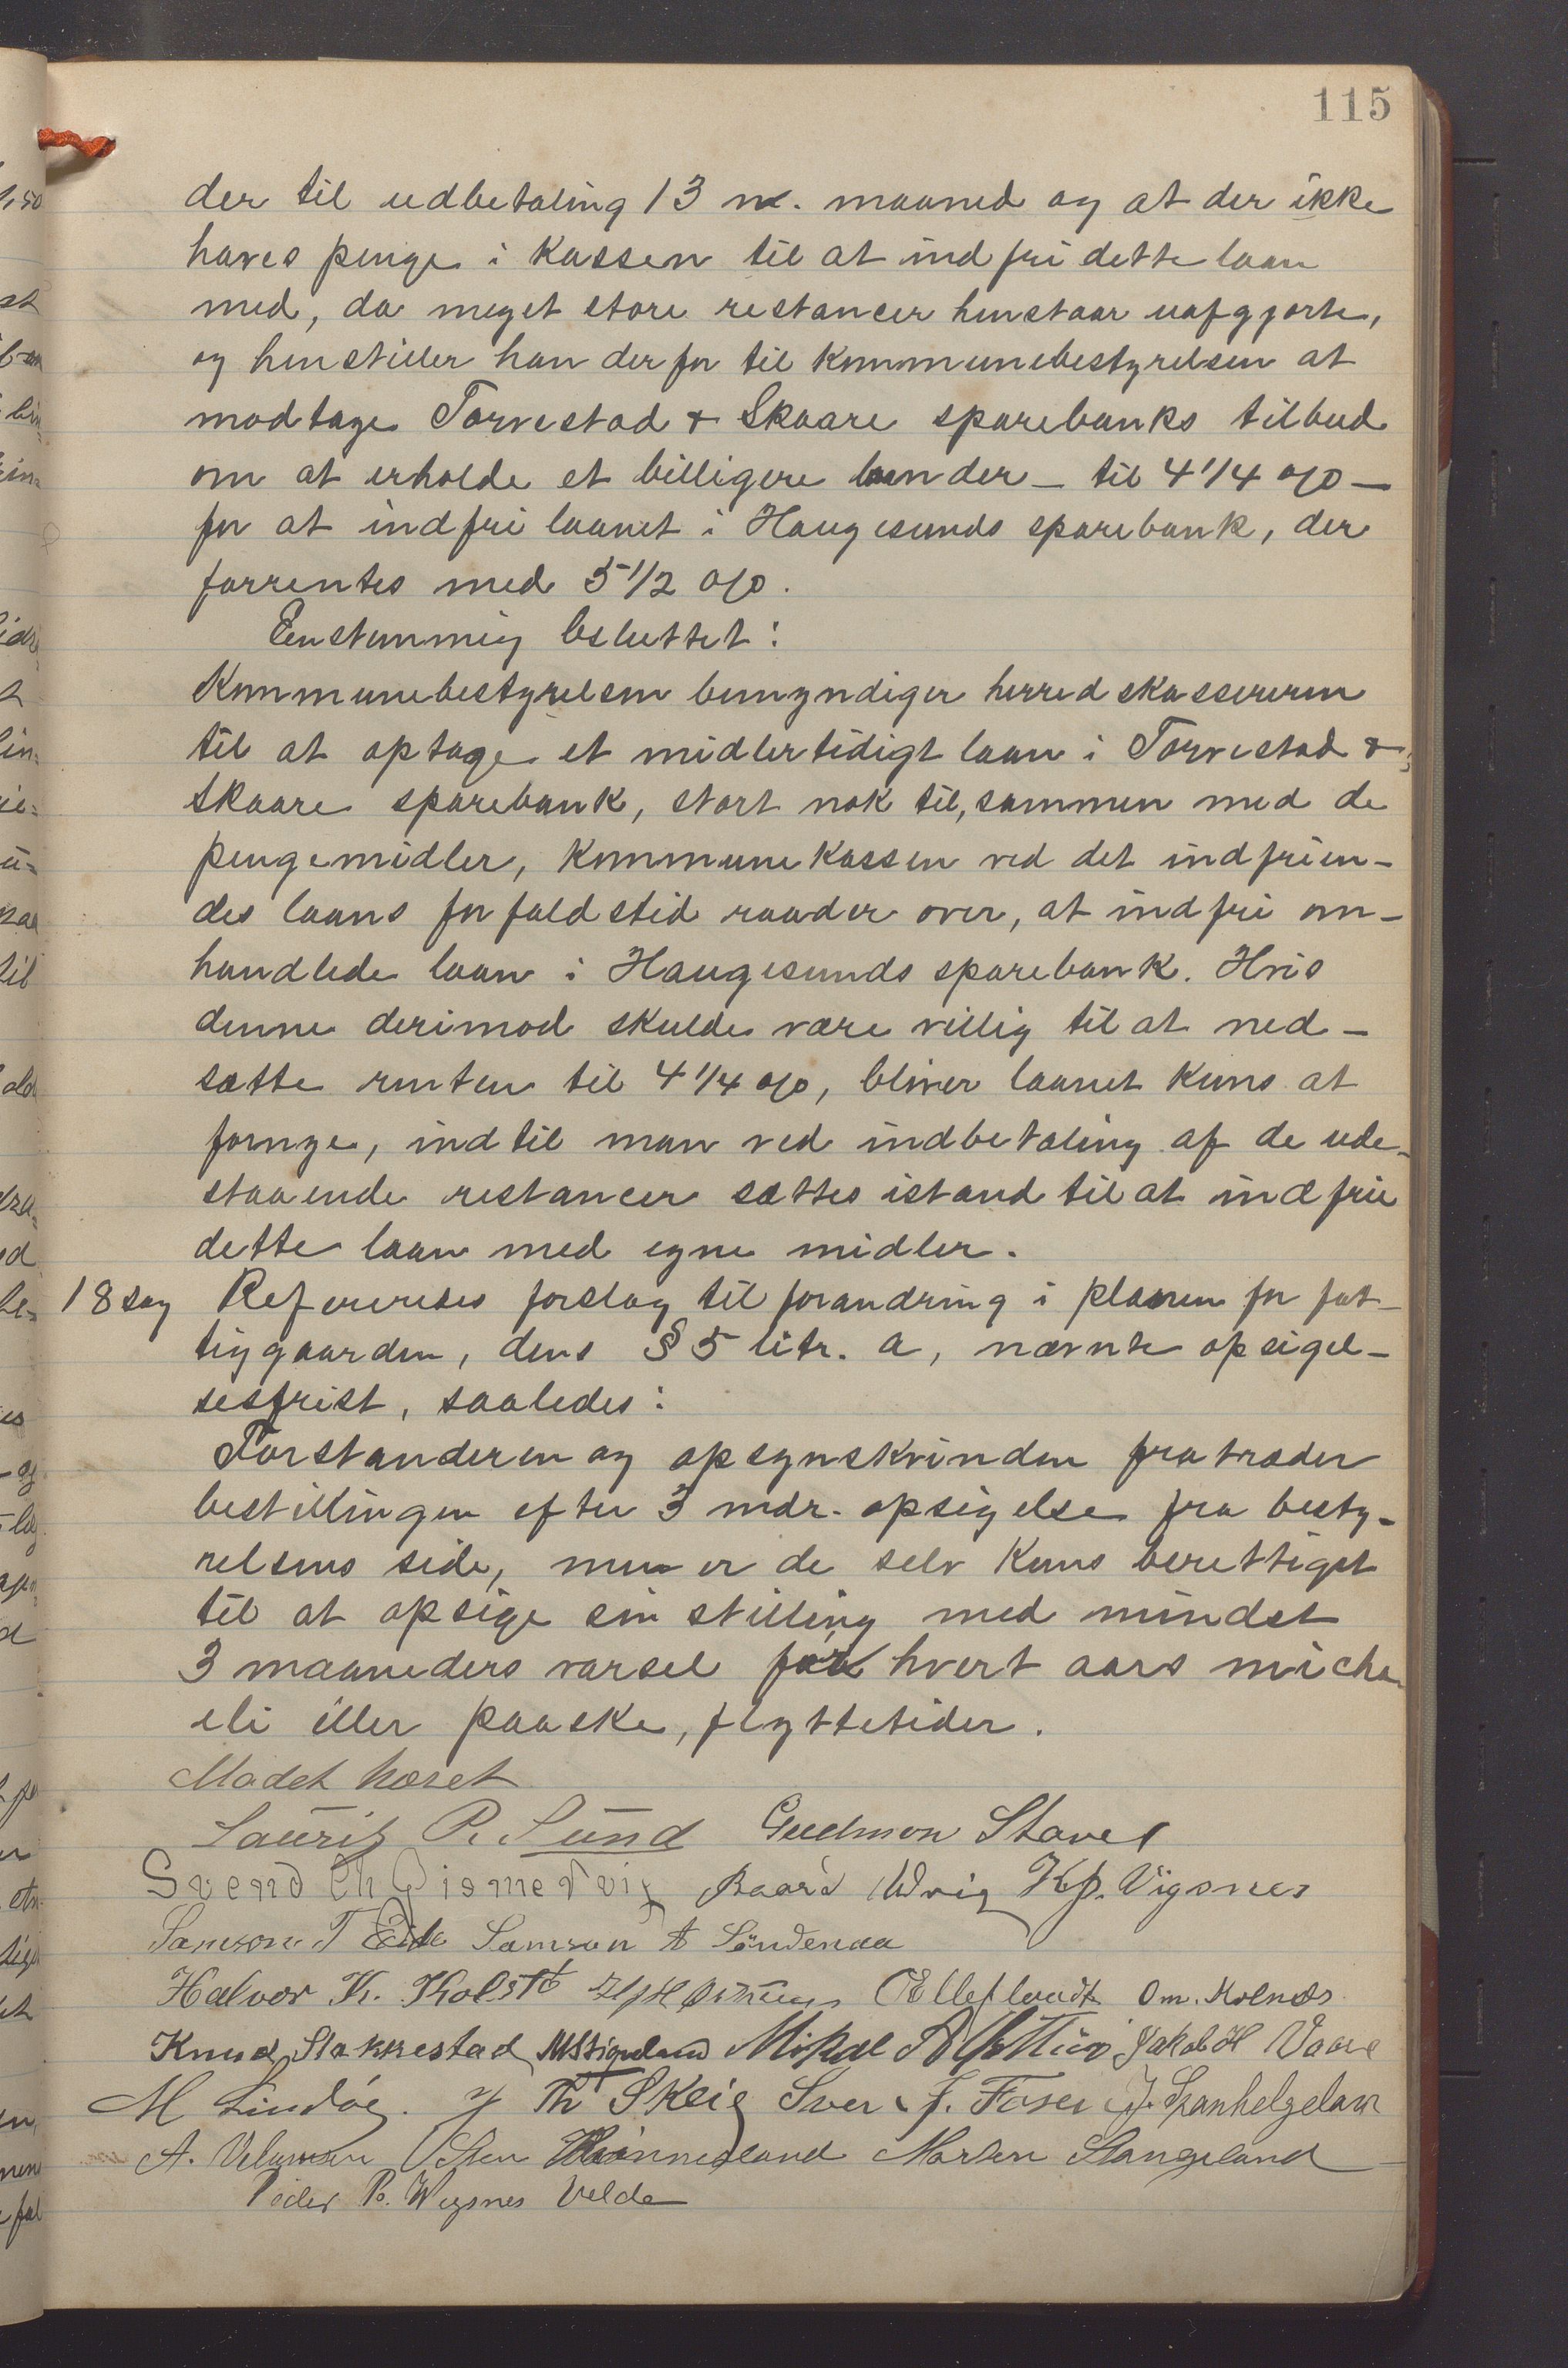 115
der til udbetaling 13 n. maaned og at der ikke
haves penge i kassen til at indfri dette laan
med, da meget store restancer henstaar uafgjorte,
og henstiller han derfor til kommunebestyrelsen at
modtage Torvestad & Skaare sparebanks tilbud
om at erholde et billigere laan der – til 4 1/4 o/o –
for at indfri laanet i Haugesunds sparebank, der
forrentes med 5 1/2 o/o.
Eenstemmig besluttet:
Kommunebestyrelsen bemyndiger herredskassereren
til at optage et midlertidigt laan i Torvestad &
Skaare sparebank, stort nok til, sammen med de
pengemidler, kommunekassen ved det indfrien-
des laans forfaldstid raader over, at indfri om-
handlede laan i Haugesunds sparebank. Hvis
denne derimod skulde være villig til at ned-
sætte renten til 4 1/4 o/o, bliver laanet kuns at
fornye, indtil man ved indbetaling af de ude-
staaende restancer sættes istand til at indfrie
dette laan med egne midler.
18 sag Refereredes forslag til forandring i planen for fat-
tiggaarden, dens § 5 litr. a, nævnte opsigel-
sesfrist, saaledes:
Forstanderen og opsynskvinden fratræder
bestillingen efter 3 mdr. opsigelse fra besty-
relsens side, men er de selv kuns berettiget
til at opsige sin stilling med mindst
3 maaneders varsel før hvert aars micha
eli eller paaske, flyttetider.
Mødet hævet
Lauritz P. Sund Gudmon Stave
Svend Baard K P. Vigsnes
Samson T Eide Samson A Söndenaa
Halvor K. Kolstö O m. Kolnæs
Knud Stakkestad Mikal A Jakob H Vaare
M Lindöe. Th Skeie Sver J. Fosen J. Spanhelgeland
A. Sten Hinnesland Morten Stangeland
Peder P. Wigsnes Velde